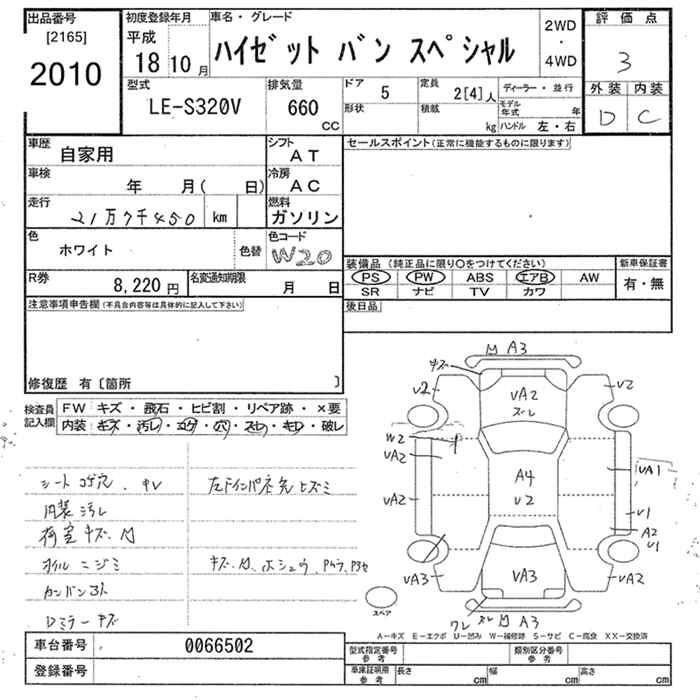 出品番号
[2165]
2010
初度登録年月
平成
18 10 月
車名・グレード
ハイゼット バン スペシャル
2WD
・
4WD
評価点
3
外装 内装
D C
型式
LE-S320V
排気量
660
CC
ドア
5
形状
定員
2[4]人
積載
kg
ディーラー・並行
モデル年式 年
ハンドル 左・右
車歴
自家用
シフト
AT
車検
年 月( 日)
冷房
AC
走行
21万7千450 km
燃料
ガソリン
色
ホワイト
色替
色コード
W20
R券
8,220 円
名変通知期限
月 日
セールスポイント(正常に機能するものに限ります)
装備品 (純正品に限り○をつけてください)
PS PW ABS エアB AW
SR ナビ TV カワ
新車保証書
有・無
後日品
注意事項申告欄(不具合内容等は具体的に記入して下さい)
修復歴 有〔箇所 〕
検査員
記入欄
FW キズ・飛石・ヒビ割・リペア跡・×要
内装 キズ・汚レ・コゲ・穴・スレ・キレ・破レ
シート コゲ穴、キレ
内装 汚レ
荷室 キズ、凹
オイル ニジミ
カンバン
Dミラー キズ
左ドインパネ先ヒズミ
キズ、凹、ホシュウ
凹 A3
キズ
V2
VA2
スレ
V2
W2
VA2
A4
V2
VA1
VA2
V1
A2
V1
VA3
VA3
VA2
スペア
ワレ スレ 凹 A3
A−キズ E−エクボ U−凹ミ W−補修跡 S−サビ C−腐食 XX−交換済
車台番号
0066502
登録番号
型式指定番号
参考
類別区分番号
参考
車庫証明用
参考
長さ cm
幅 cm
高さ cm